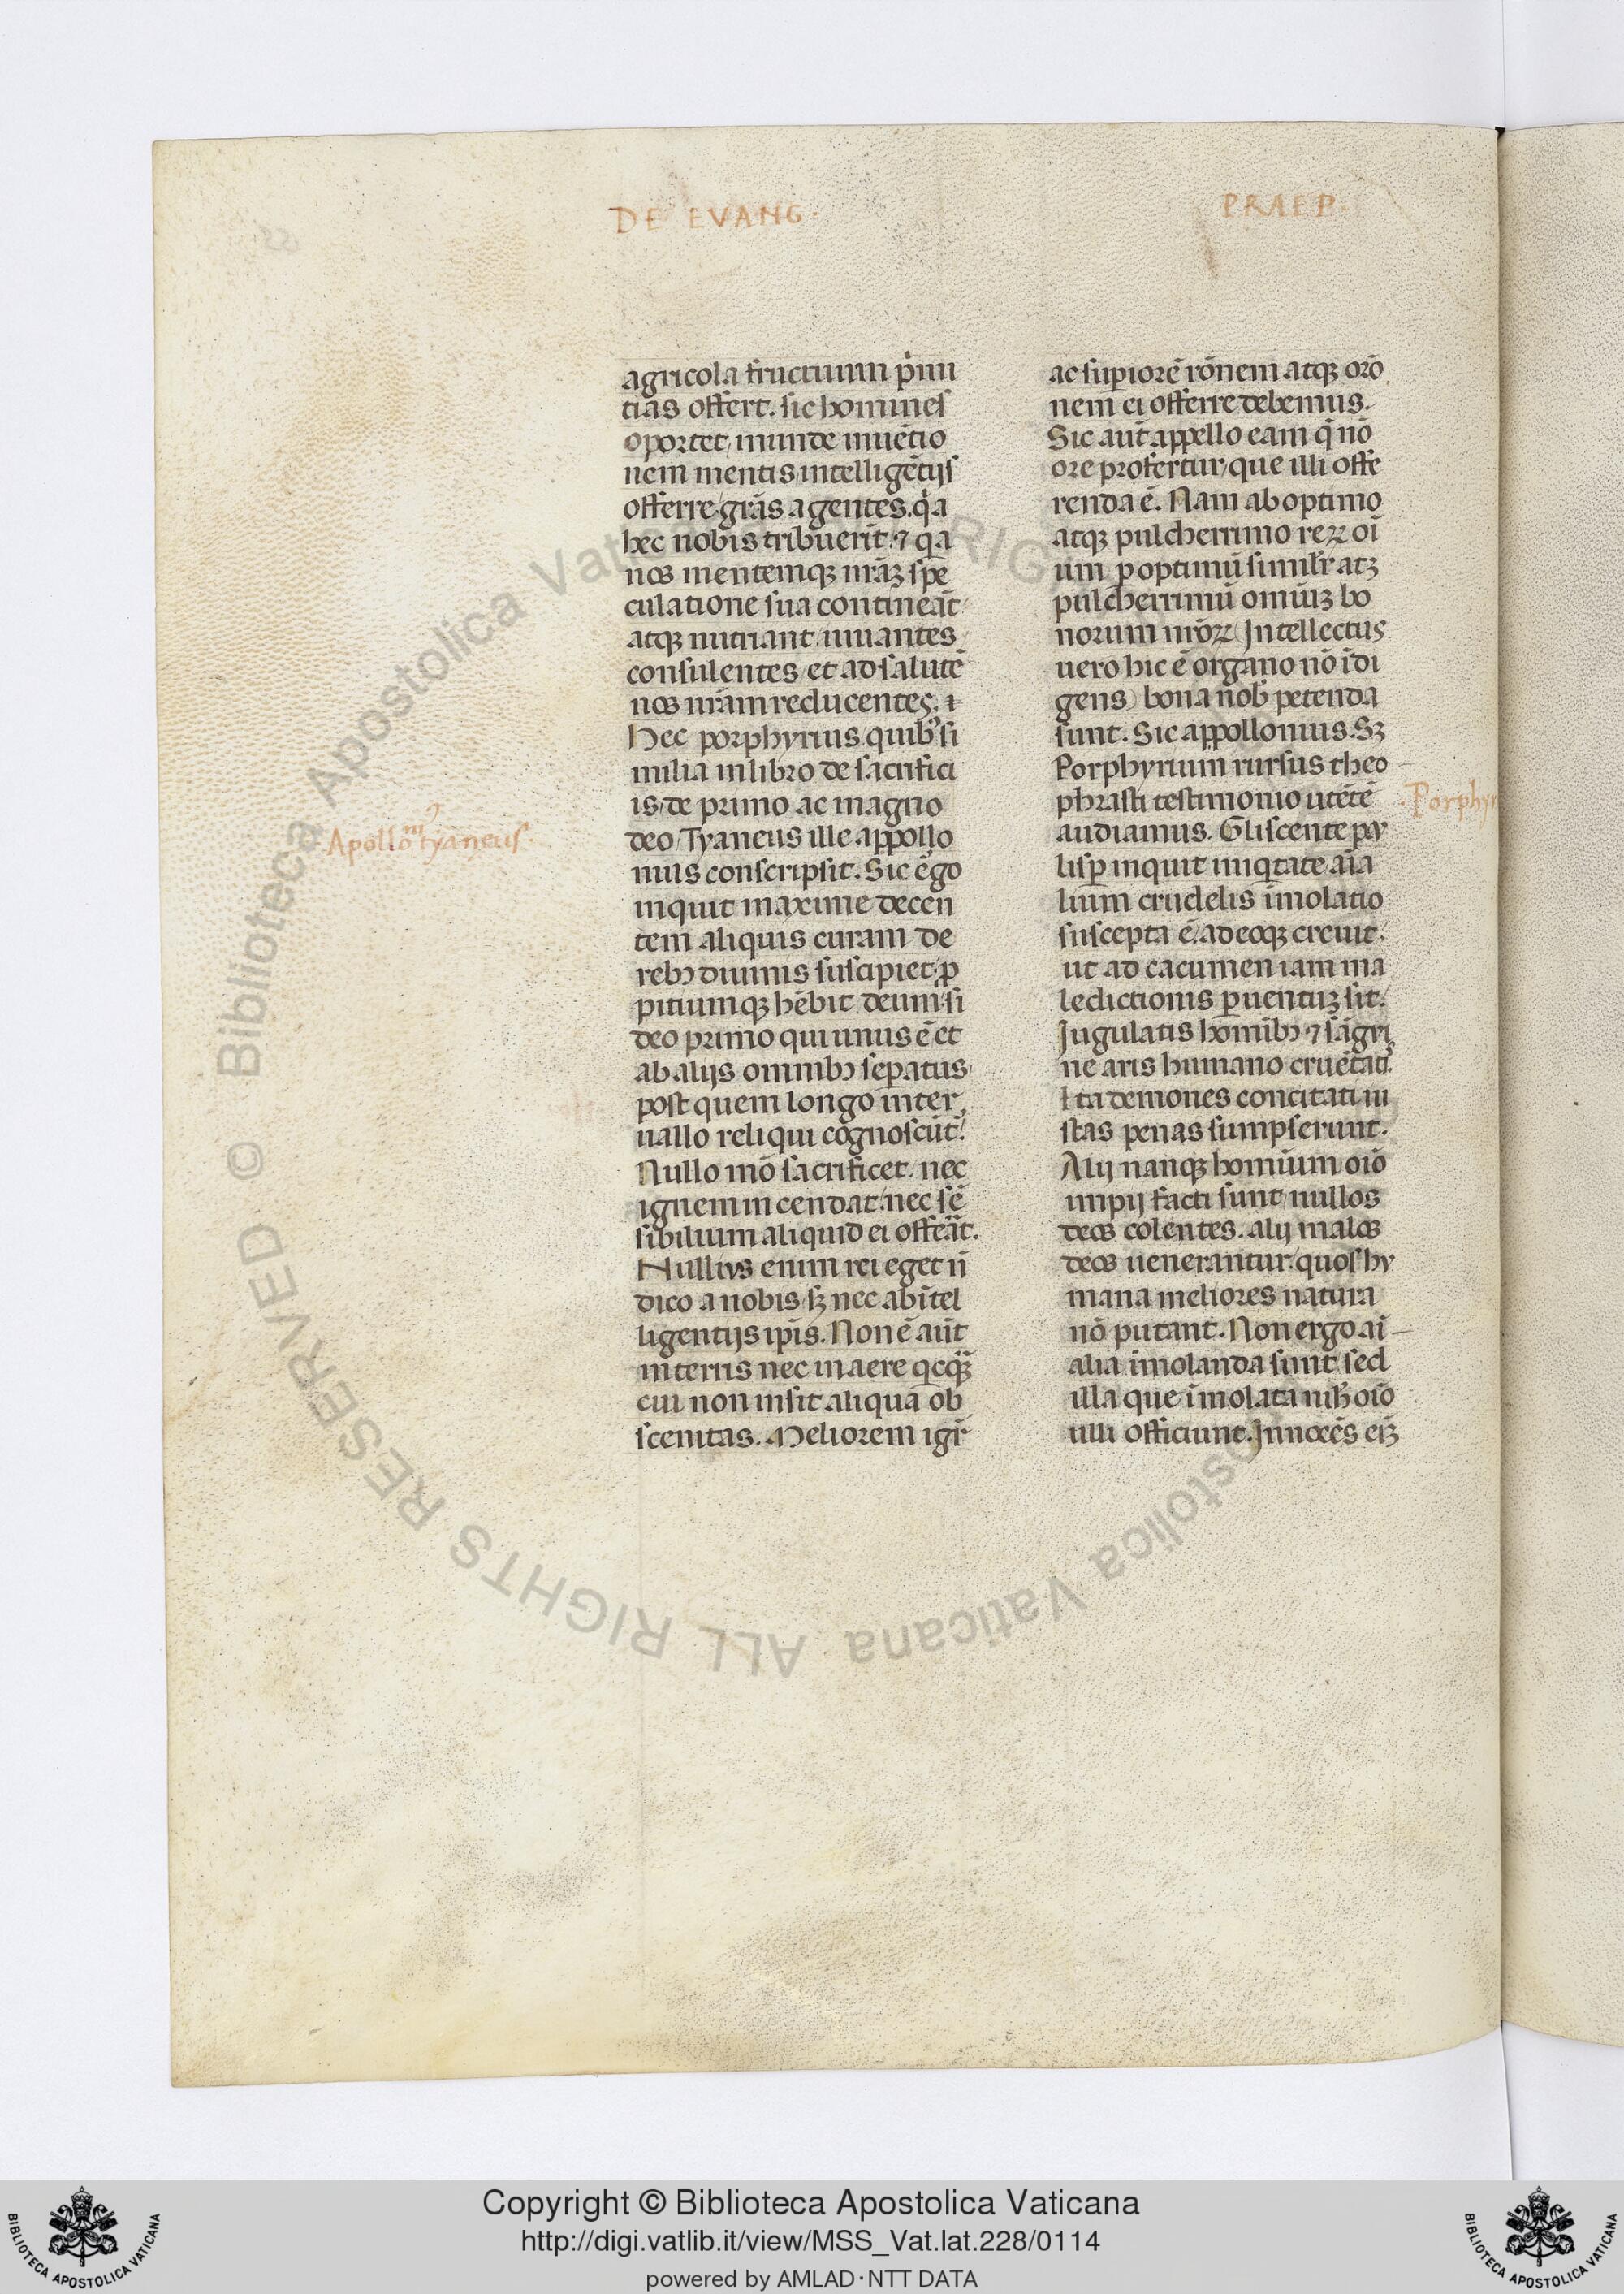 DE EVANG·
PRAEP·
agricola fructuum p̓mi
tias offert. sic homines
oportet, munde inuētio
nem mentis intelligētijs
offerre, grās agentes, q̓a
hec nobis tribuerit: ⁊ q̓a
nos mentemqꝫ nrāꝫ spe
culatione sua contineāt
atqꝫ nutriant, iuuantes
consulentes, et ad salutē
nos nrām reducentes. ⁊
Hec porphyrius, quibꝰ si
milia in libro de sacrifici
is, de primo ac magno
deo, Tyaneus ille appollo
nius conscripsit. Sic ego
inquit maxime decen
tem aliquis curam de
rebꝫ diuinis suscipiet, ꝓ
pitiumqꝫ hēbit deum, si
deo primo qui unus ē et
ab alijs omnibꝫ seꝑatus
post quem longo inter
uallo reliqui cognoscūt:
Nullo mō sacrificet, nec
ignem incendat, nec sē
sibilium aliquid ei offeāt.
Nullius enim rei eget, n̄
dico a nobis, sꝫ nec ab ītel
ligentijs ip̄is. Non ē aūt
in terris nec in aere qcq̄ꝫ
cui non insit aliqua ob
scenitas. Meliorem igr̄
ac suꝑiorē rōnem atqꝫ orō
nem ei offerre debemus.
Sic aūt appello eam q̄ nō
ore profertur, que illi offe
renda ē. Nam ab optimo
atqꝫ pulcherrimo reꝝ oī
um ꝑ optimū similr̄ atꝫ
pulcherrimū omiūꝫ bo
norum nrōꝝ (Intellectus
uero hic ē organo nō īdi
gens) bona nob̄ petenda
sunt. Sic appollonius. Sꝫ
Porphyrium rursus theo
phrasti testimonio utētē
audiamus. Gliscente pay
lisꝑ inquit iniq̓tate, aīa
lium crudelis īmolatio
suscepta ē, adeoqꝫ creuit,
ut ad cacumen iam ma
ledictionis ꝑuentuꝫ sit.
Jugulatis homībꝫ ⁊ sāgui
ne aris humano cruētatis
Ita demones concitati iu
stas penas sumpserunt.
Alij nanqꝫ homiūm oīo
impij facti sunt, nullos
deos colentes. alij malos
deos uenerantur, quos hu
mana meliores natura
nō putant. Non ergo aī
alia īmolanda sunt sed
illa que īmolata nih̄ oīo
illi officiunt. Innocēs eīꝫ
Apollōniꝰ tyaneus·
Porphyr
Copyright © Biblioteca Apostolica Vaticana
http://digi.vatlib.it/view/MSS_Vat.lat.228/0114
powered by AMLAD·NTT DATA
BIBLIOTECA APOSTOLICA VATICANA
BIBLIOTECA APOSTOLICA VATICANA